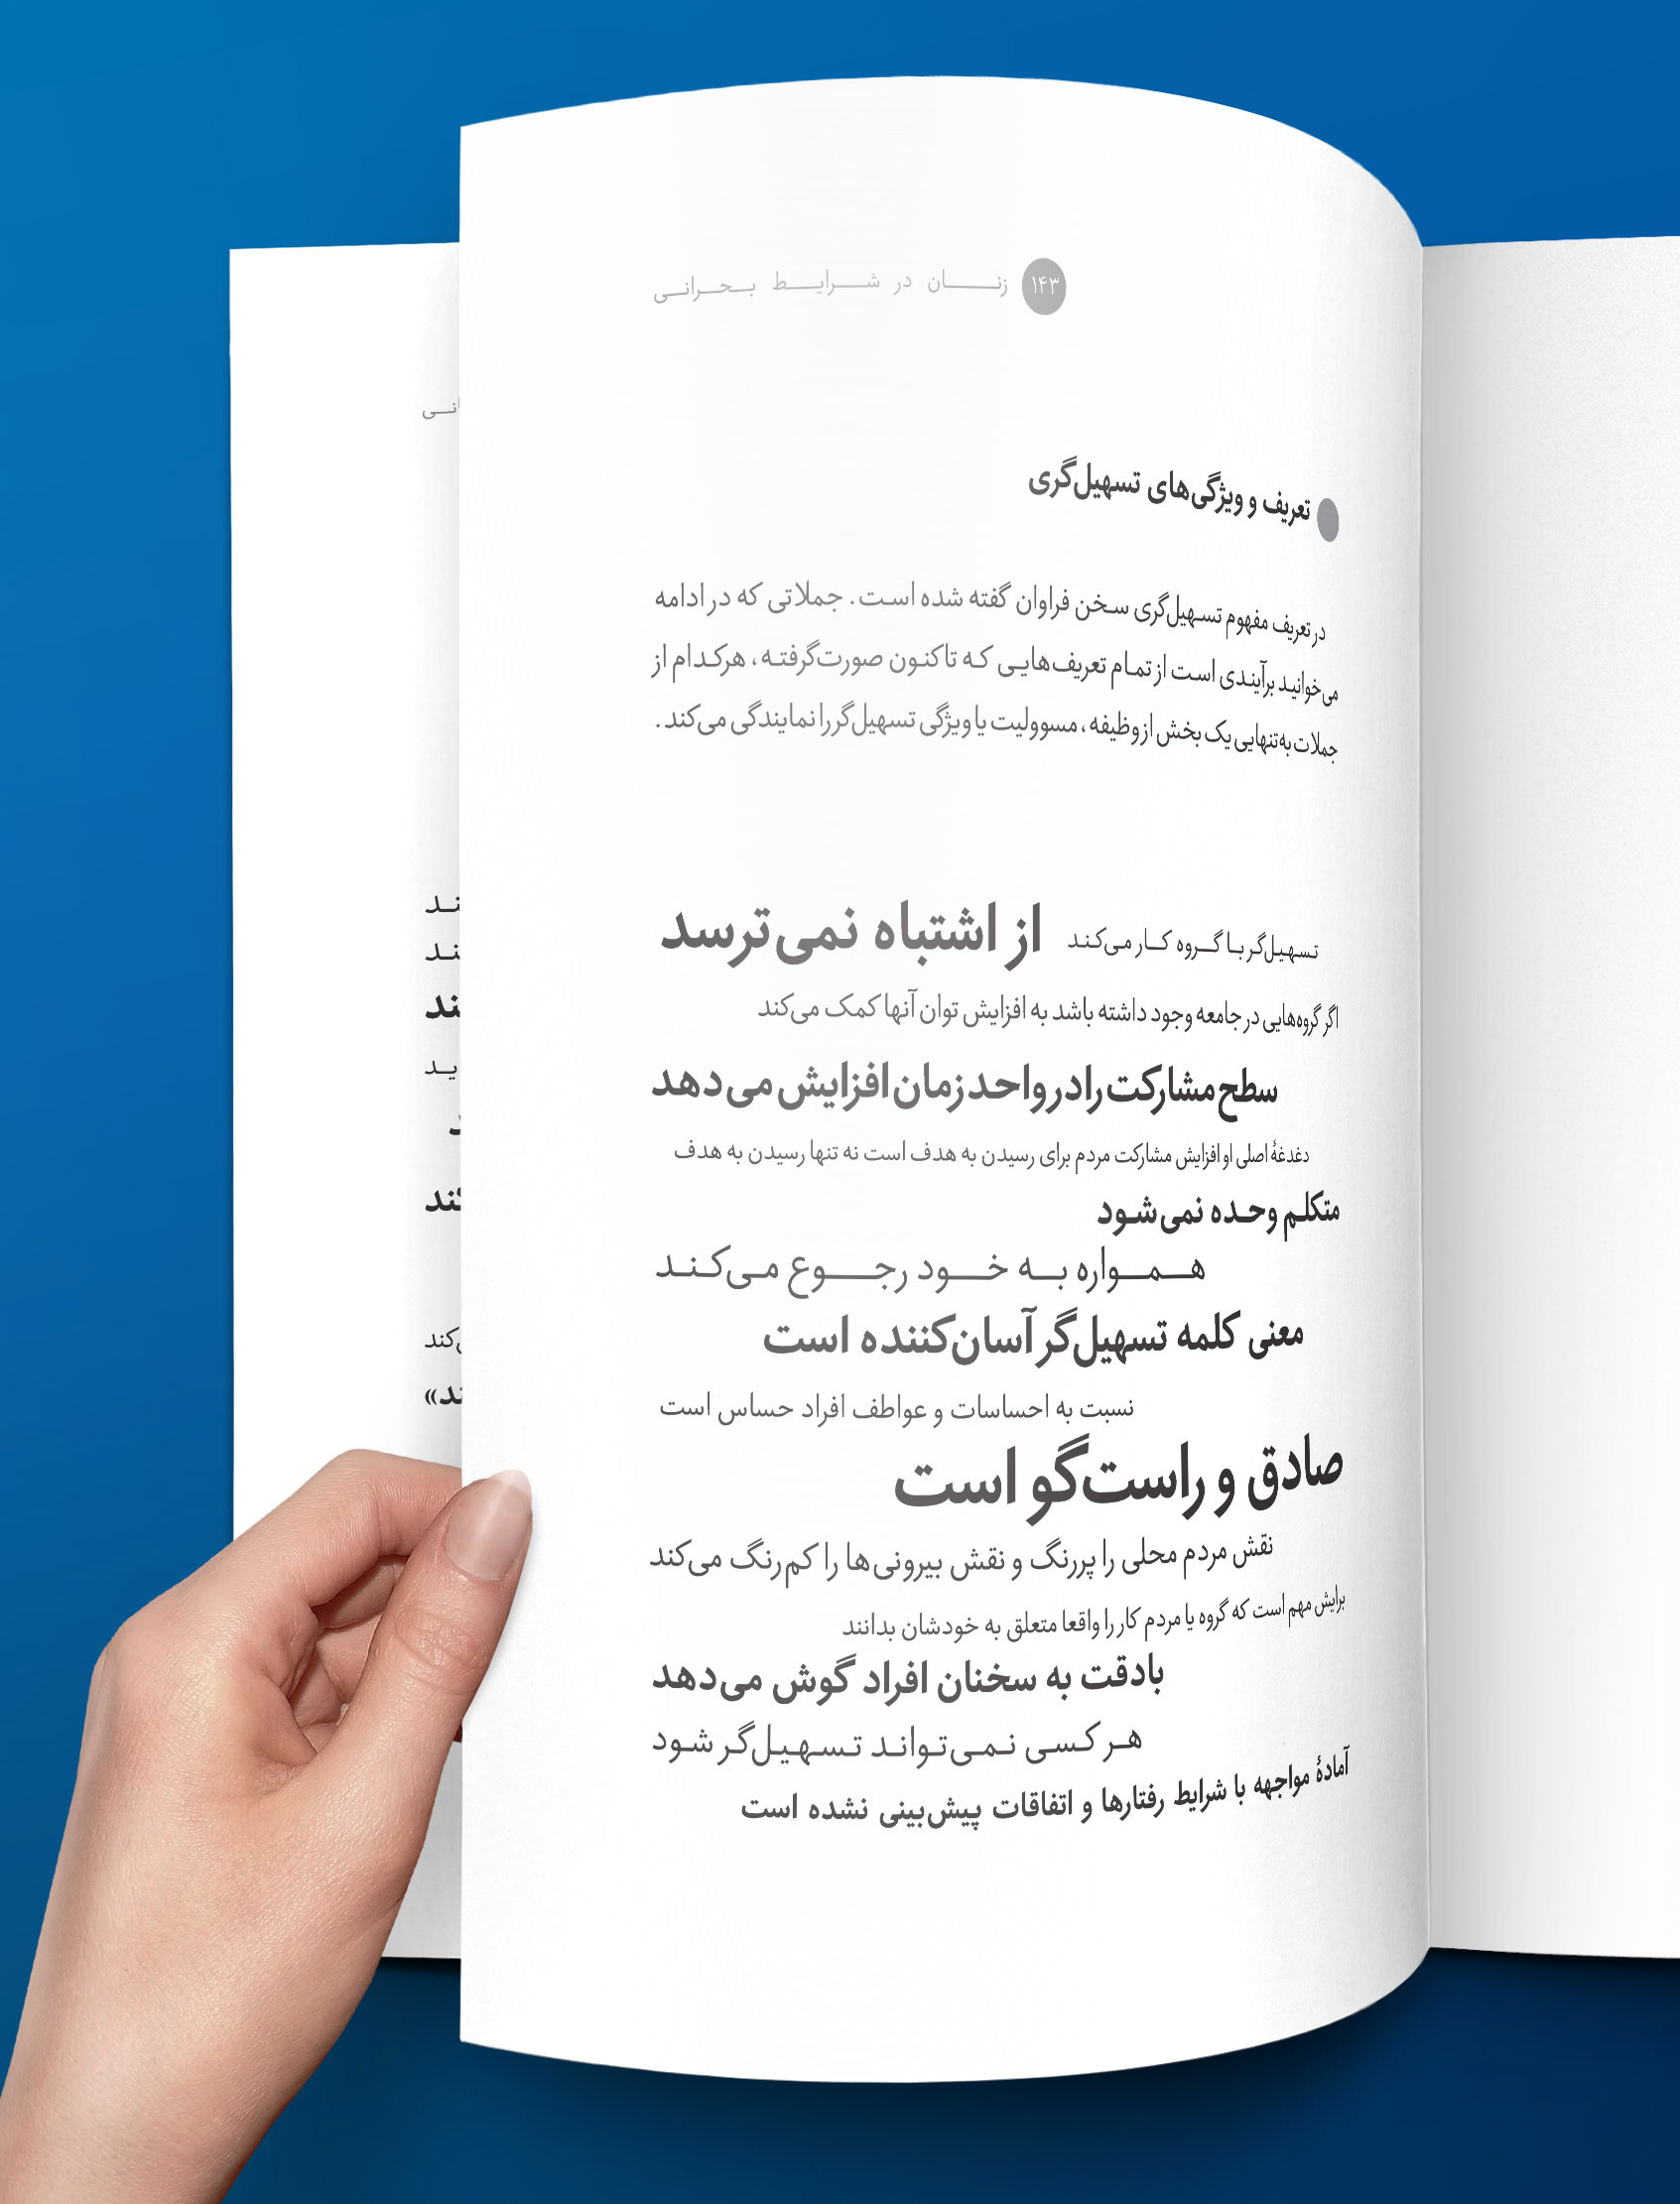 ۱۴۳ زنان در شرایط بحرانی
تعریف و ویژگی‌های تسهیل‌گری
در تعریف مفهوم تسهیل‌گری سخن فراوان گفته شده است. جملاتی که در ادامه
می‌خوانید برآیندی است از تمام تعریف‌هایی که تاکنون صورت‌گرفته، هرکدام از
جملات به‌تنهایی یک بخش از وظیفه، مسوولیت یا ویژگی تسهیل‌گر را نمایندگی می‌کند.
تسهیل‌گر با گروه کار می‌کند از اشتباه نمی‌ترسد
اگر گروه‌هایی در جامعه وجود داشته باشد به افزایش توان آنها کمک می‌کند
سطح مشارکت را در واحد زمان افزایش می‌دهد
دغدغهٔ اصلی او افزایش مشارکت مردم برای رسیدن به هدف است نه تنها رسیدن به هدف
متکلم وحده نمی‌شود
همواره به خود رجوع می‌کند
معنی کلمه تسهیل‌گر آسان‌کننده است
نسبت به احساسات و عواطف افراد حساس است
صادق و راست‌گو است
نقش مردم محلی را پررنگ و نقش بیرونی‌ها را کم‌رنگ می‌کند
برایش مهم است که گروه یا مردم کار را واقعا متعلق به خودشان بدانند
بادقت به سخنان افراد گوش می‌دهد
هر کسی نمی‌تواند تسهیل‌گر شود
آمادهٔ مواجهه با شرایط رفتارها و اتفاقات پیش‌بینی نشده است